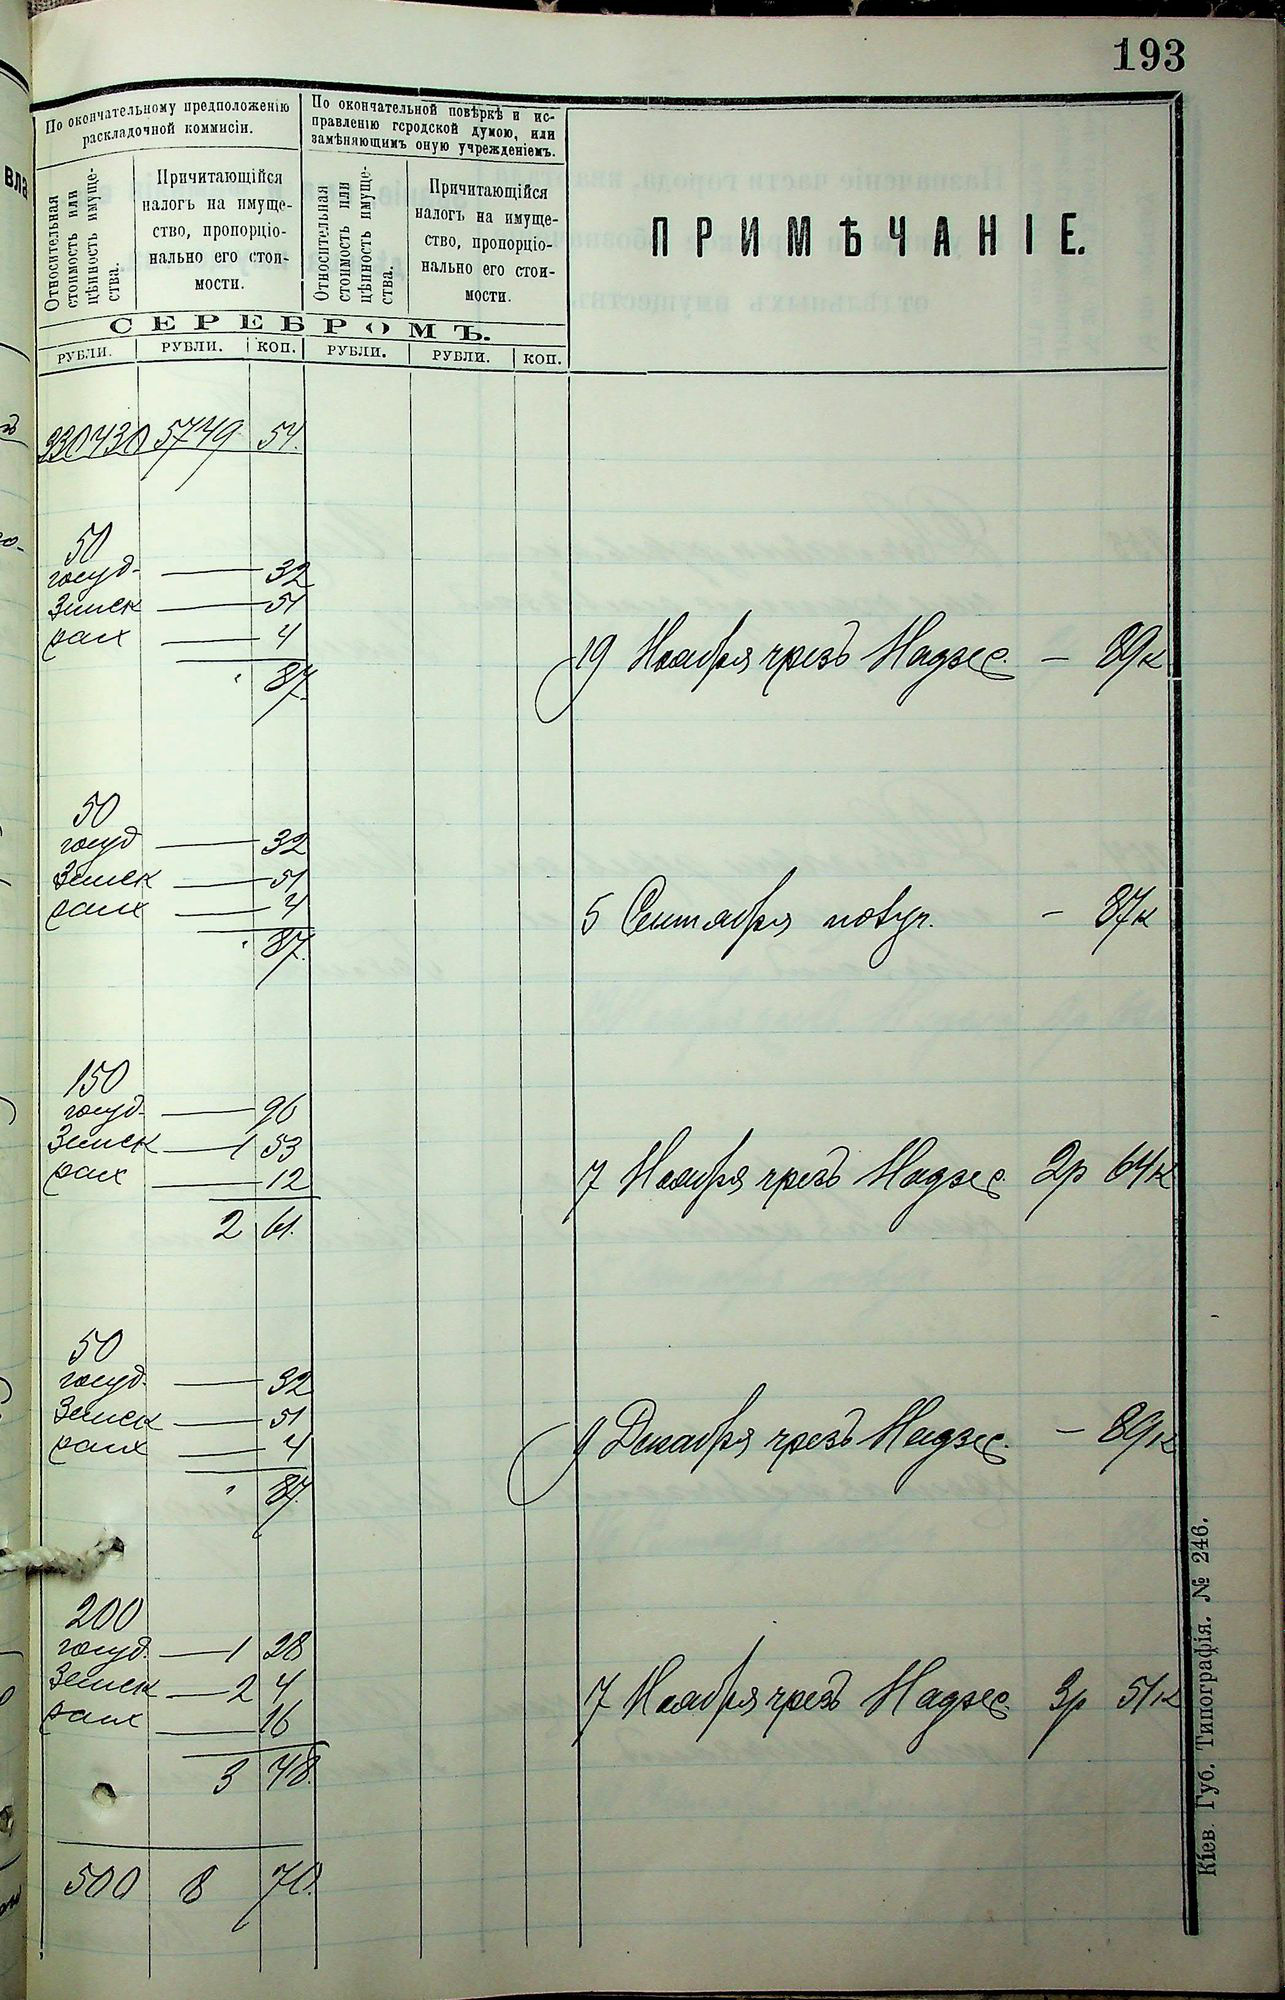 193
По окончательному предположенію
раскладочной коммисіи.
По окончательной повѣркѣ и ис-
правленію городской думою, или
замѣняющимъ оную учрежденіемъ.
Относительная
стоимость или
цѣнность имуще-
ства.
Причитающійся
налогъ на имуще-
ство, пропорціо-
нально его стои-
мости.
Относительная
стоимость или
цѣнность имуще-
ства.
Причитающійся
налогъ на имуще-
ство, пропорціо-
нально его стои-
мости.
ПРИМѢЧАНІЕ.
СЕРЕБРОМЪ.
РУБЛИ. РУБЛИ. КОП. РУБЛИ. РУБЛИ. КОП.
330430 5749 54.
50
госуд. — 32
Земск — 51
— 4
87.
19 Ноября чрезъ Надзес. — 89к
50
госуд — 32
Земск — 51
— 4
87.
5 Сентября — 87к
150
госуд. — 96
Земск — 1 53
— 12
2 61.
7 Ноября чрезъ Надзес. 2р 64к
50
госуд. — 32
Земск — 51
— 4
87.
9 Декабря чрезъ Надзес. — 89к
200
госуд. — 1 28
Земск — 2 4
— 16
3 48.
7 Ноября чрезъ Надзес 3р 51к
500 8 70.
Кіев. Губ. Типографія. № 246.